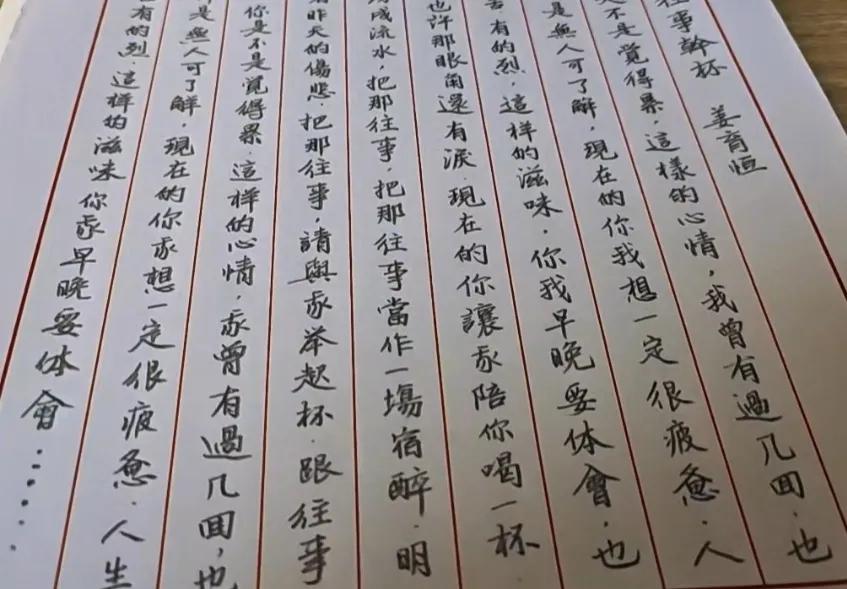 往事幹杯 姜育恒
不是覺得累，這樣的心情，我曾有過几回，也
是無人可了解，現在的你我想一定很疲惫．人
有的烈，這样的滋味，你我早晚要体會，也
也許那眼角還有淚．現在的你讓我陪你喝一杯
成流水，把那往事，把那往事當作一場宿醉．明
昨天的傷悲．把那往事，請與我举起杯．跟往事
你是不是覺得累．這样的心情，我曾有過几回，也
是無人可了解．現在的你我想一定很疲惫．人生
有的烈．這样的滋味你我早晚要体會……